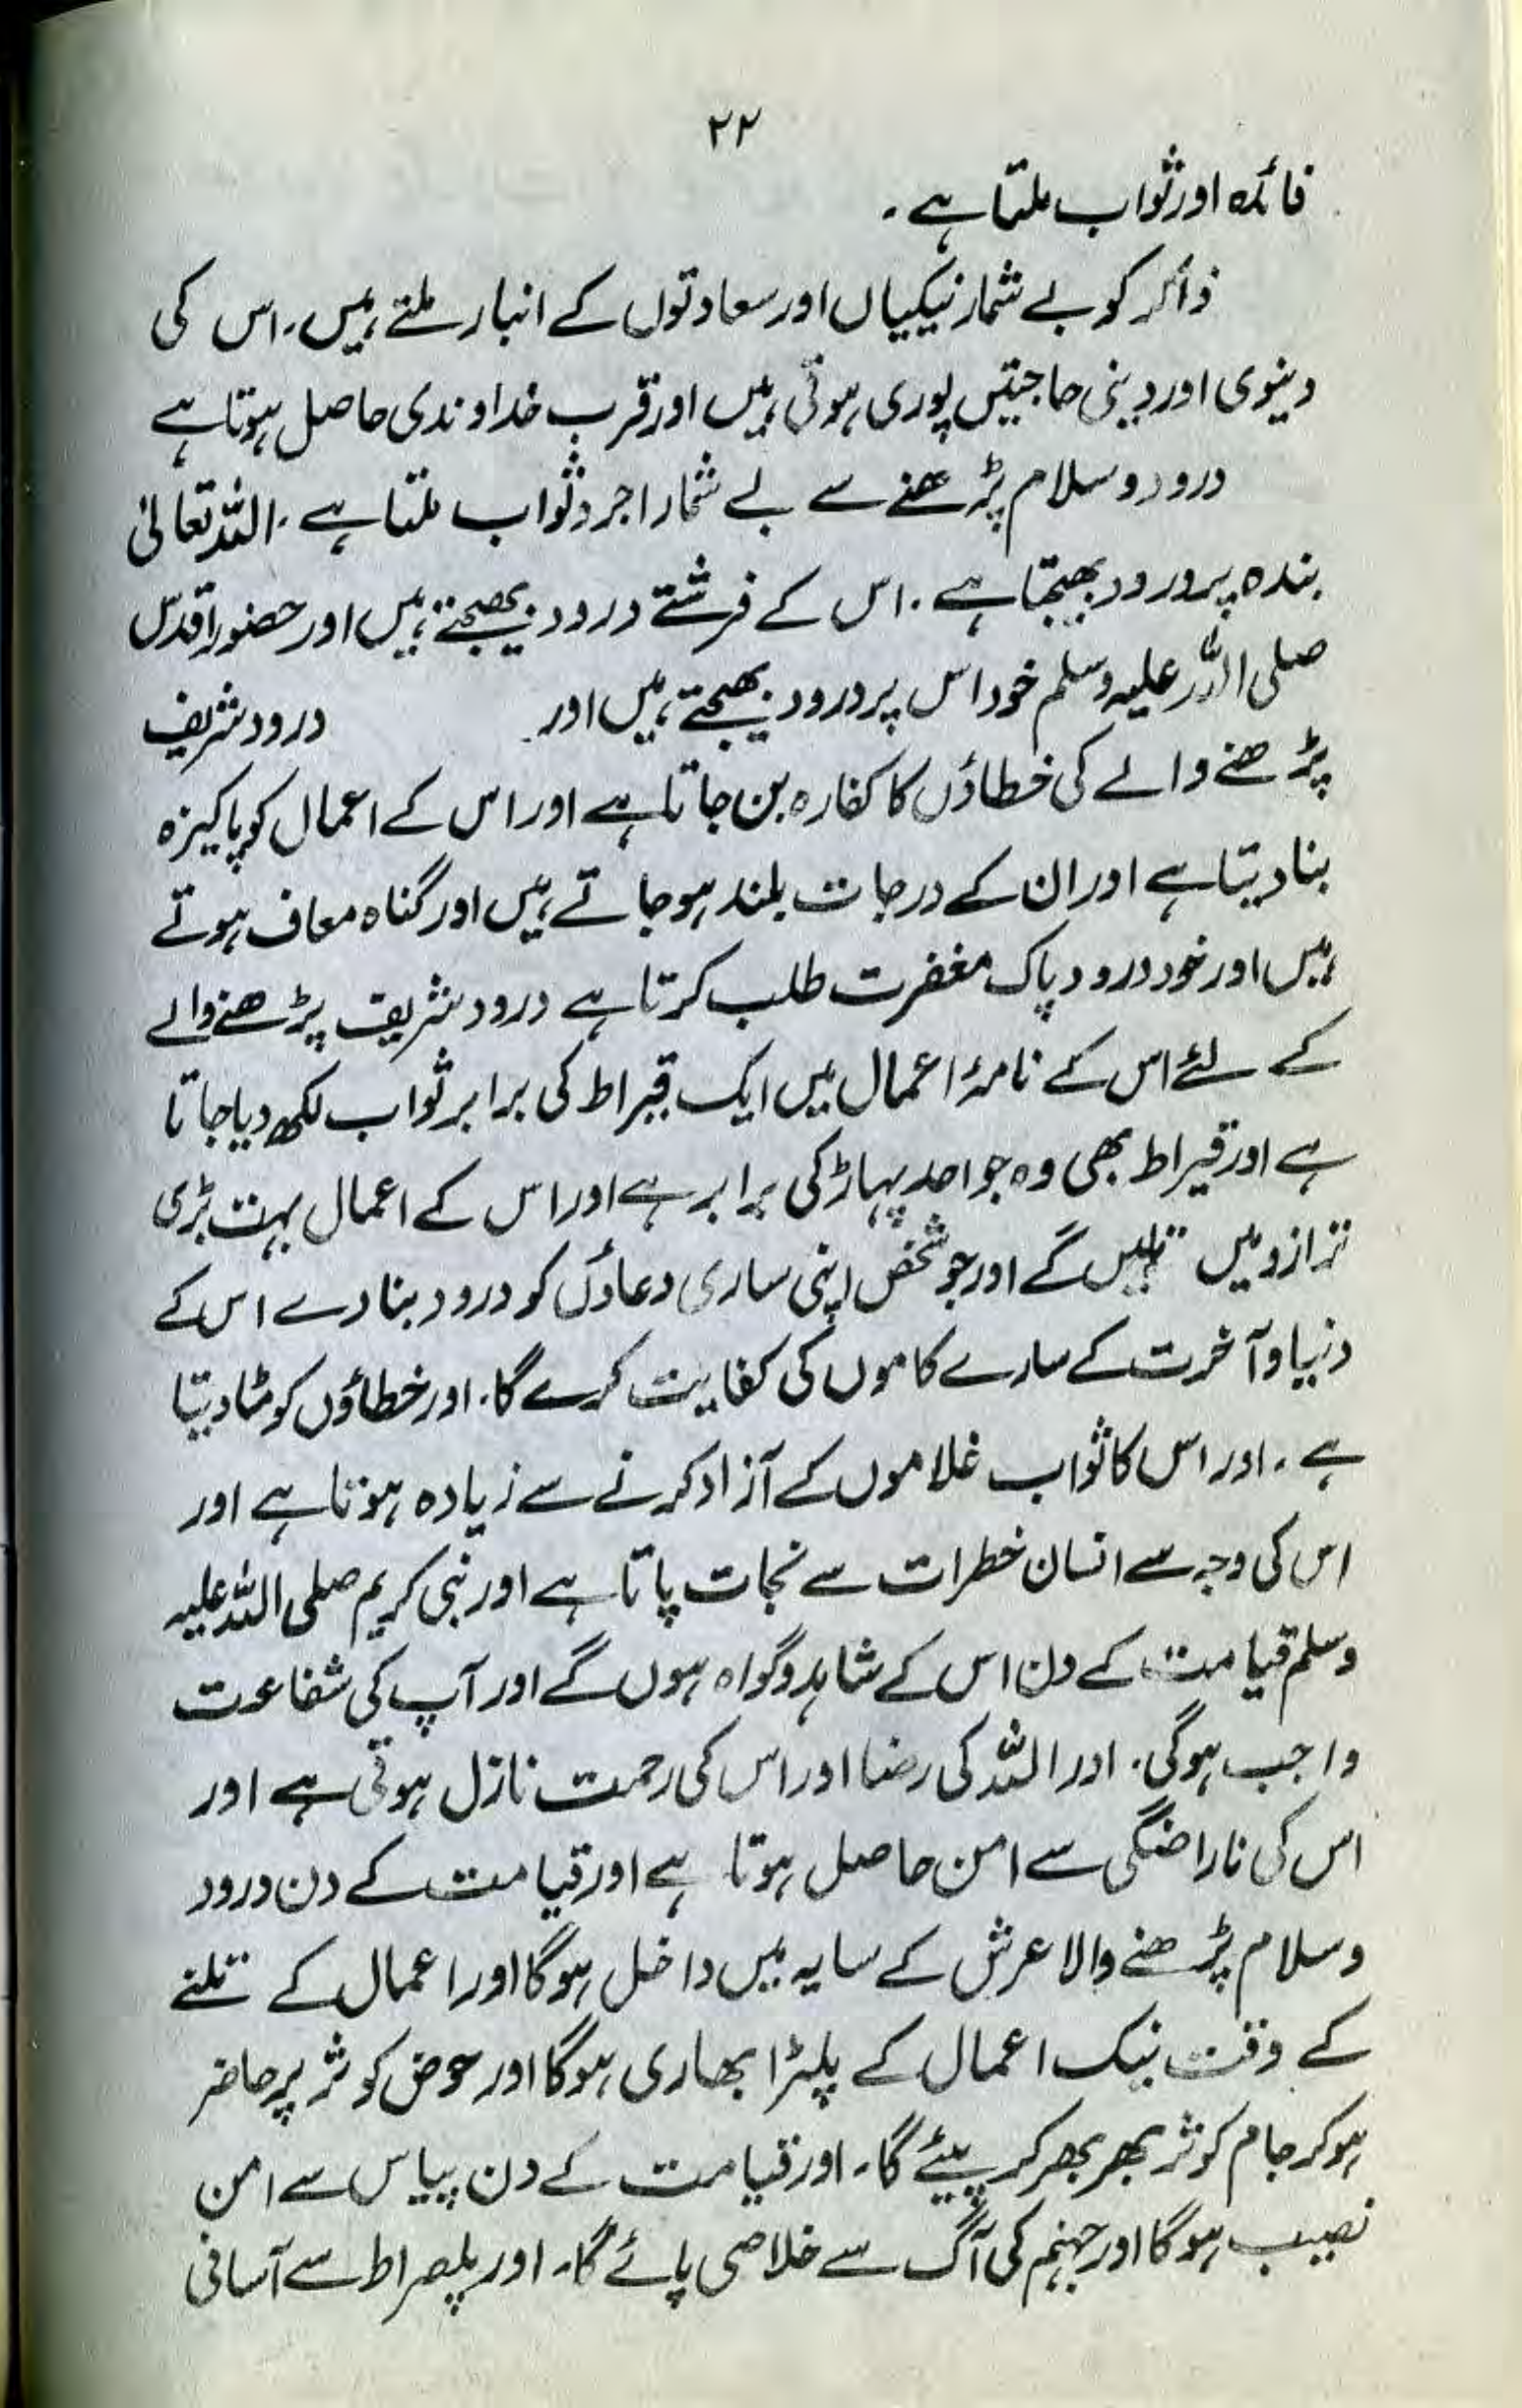 ۲۲
فائدہ اور ثواب ملتا ہے۔
ذاکر کو بے شمار نیکیاں اور سعادتوں کے انبار ملتے ہیں۔ اس کی
دینوی اور دینی حاجتیں پوری ہوتی ہیں اور قرب خداوندی حاصل ہوتا ہے
درود و سلام پڑھنے سے بے شمار اجر و ثواب ملتا ہے۔ اللہ تعالیٰ
بندہ پر درود بھیجتا ہے۔ اس کے فرشتے درود بھیجتے ہیں اور حضور اقدس
صلی اللہ علیہ وسلم خود اس پر درود بھیجتے ہیں اور درود شریف
پڑھنے والے کی خطاؤں کا کفارہ بن جاتا ہے اور اس کے اعمال کو پاکیزہ
بنا دیتا ہے اور ان کے درجات بلند ہو جاتے ہیں اور گناہ معاف ہوتے
ہیں اور خود درود پاک مغفرت طلب کرتا ہے درود شریف پڑھنے والے
کے لئے اس کے نامۂ اعمال میں ایک قیراط کی برابر ثواب لکھ دیا جاتا
ہے اور قیراط بھی وہ جو احد پہاڑ کی برابر ہے اور اس کے اعمال بہت بڑی
ترازو میں تلیں گے اور جو شخص اپنی ساری دعاؤں کو درود بنا دے اس کے
دنیا و آخرت کے سارے کاموں کی کفایت کرے گا۔ اور خطاؤں کو مٹا دیتا
ہے۔ اور اس کا ثواب غلاموں کے آزاد کرنے سے زیادہ ہوتا ہے اور
اس کی وجہ سے انسان خطرات سے نجات پاتا ہے اور نبی کریم صلی اللہ علیہ
وسلم قیامت کے دن اس کے شاہد و گواہ ہوں گے اور آپ کی شفاعت
واجب ہوگی۔ اور اللہ کی رضا اور اس کی رحمت نازل ہوتی ہے اور
اس کی ناراضگی سے امن حاصل ہوتا ہے اور قیامت کے دن درود
و سلام پڑھنے والا عرش کے سایہ میں داخل ہوگا اور اعمال کے تلنے
کے وقت نیک اعمال کے پلڑا بھاری ہوگا اور حوض کوثر پر حاضر
ہو کر جام کوثر بھر بھر کر پیئے گا۔ اور قیامت کے دن پیاس سے امن
نصیب ہوگا اور جہنم کی آگ سے خلاصی پائے گا۔ اور پلصراط سے آسانی